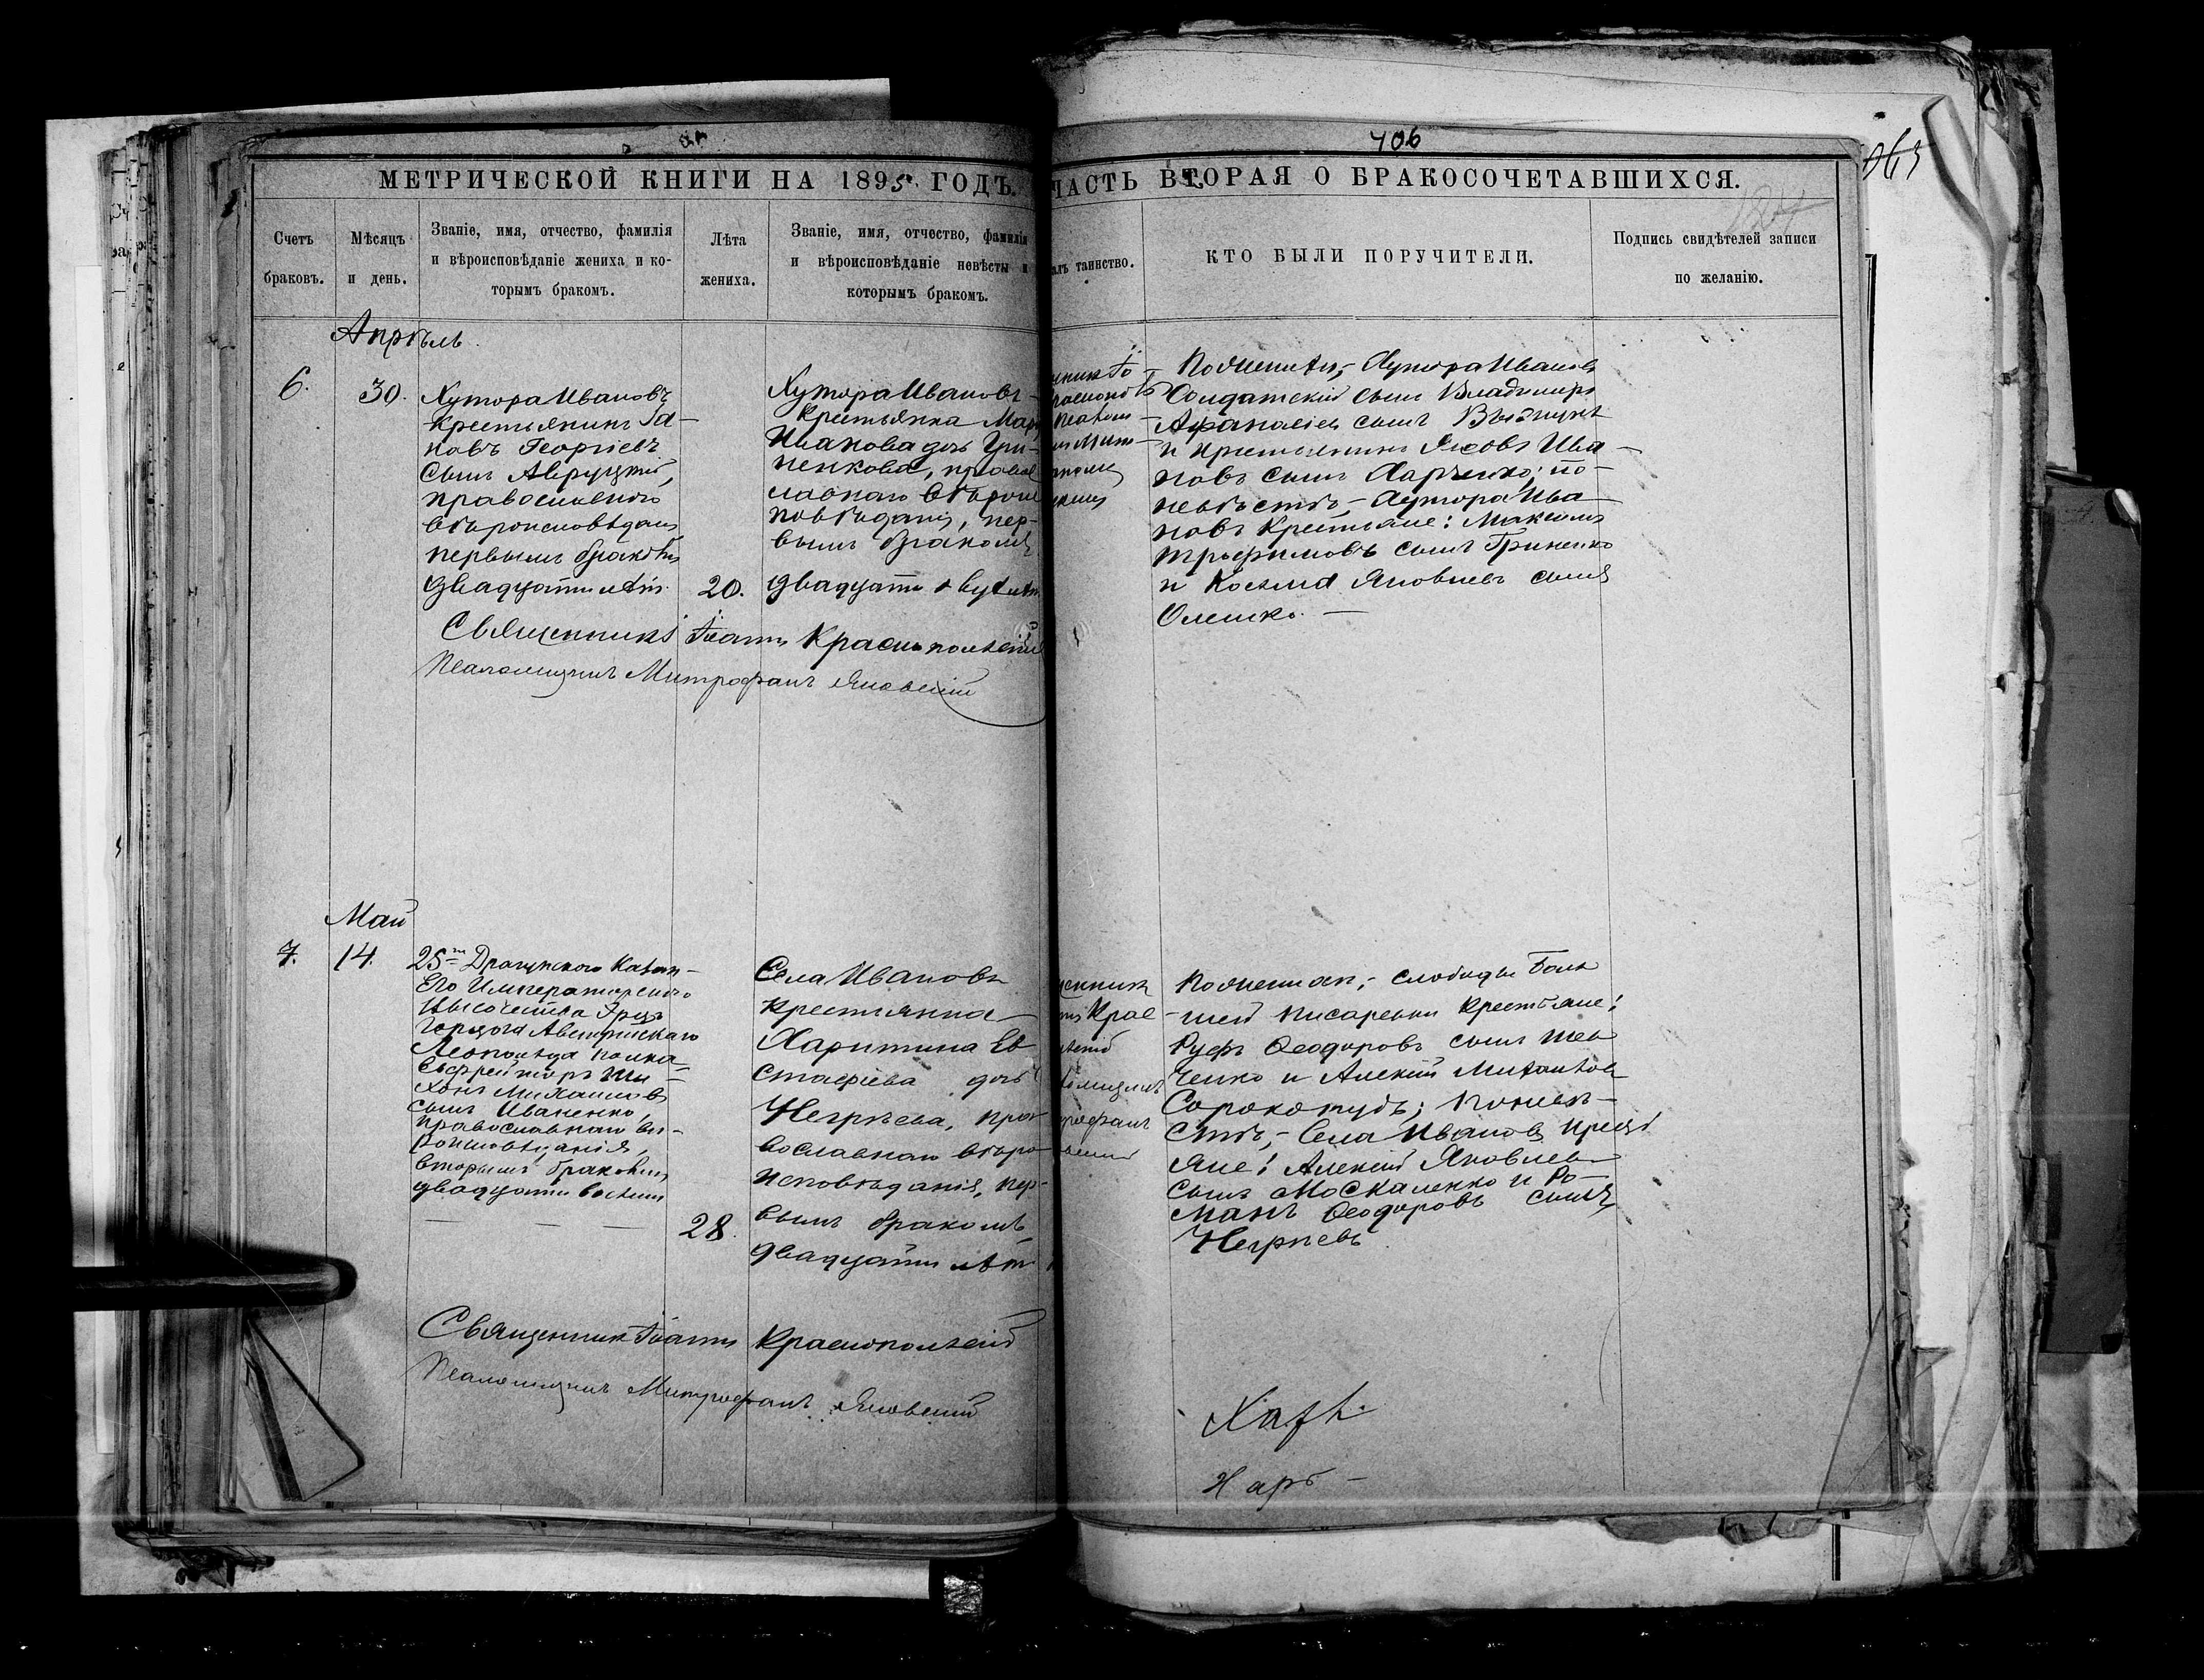 406
МЕТРИЧЕСКОЙ КНИГИ НА 1895 ГОДЪ.
ЧАСТЬ ВТОРАЯ О БРАКОСОЧЕТАВШИХСЯ.
Счетъ
браковъ.
Мѣсяцъ
и день.
Званіе, имя, отчество, фамилія
и вѣроисповѣданіе жениха и ко-
торымъ бракомъ.
Лѣта
жениха.
Званіе, имя, отчество, фамилія
и вѣроисповѣданіе невѣсты и
которымъ бракомъ.
таинство.
КТО БЫЛИ ПОРУЧИТЕЛИ.
Подпись свидѣтелей записи
по желанію.
Апрѣль
6.
30.
Хутора Ивановъ
крестьянинъ
новъ Георгіевъ
сынъ
православнаго
вѣроисповѣданія
первымъ бракомъ
двадцати лѣтъ
20.
Хутора Ивановъ
крестьянка
дочь Гри-
ненкова, правос
лавнаго вѣроис
повѣданія, пер-
вымъ бракомъ
двадцати
По женихѣ, Хутора Ивановъ
Солдатскій сынъ Владиміръ
Афанасіевъ сынъ
и крестьянинъ Яковъ Ива-
новъ сынъ Харченко; по
невѣстѣ, Хутора Ива-
новъ крестьяне: Максимъ
Трофимовъ сынъ Гриненко
и Косьма Яковлевъ сынъ
Олешко.
Священникъ Іоаннъ Краснопольскій
Псаломщикъ Митрофанъ Яновскій
Май
7.
14.
25го Драгунского Казан-
Его Императорского
Высочества Эрцъ
Герцога Австрійскаго
Леопольда полка
Ефрейторъ Ти-
хонъ Михаиловъ
сынъ Иваненко,
православнаго вѣ-
роисповѣданія,
вторымъ бракомъ,
двадцати восьми
28.
Села Ивановъ
крестьянка
Харитина Ев
стафіева дочь
Негрѣева, пра
вославнаго вѣро
исповѣданія, пер-
вымъ бракомъ
двадцати лѣтъ
По женихѣ, слободы Боль
шей Писаревки крестьяне:
Руфъ Ѳеодоровъ сынъ Шев
ченко и Алексій Михаиловъ
Сорокопудъ; по невѣ-
стѣ, Села Ивановъ крест
яне: Алексій Яковлевъ
сынъ Москаленко и Ро-
манъ Ѳеодоровъ сынъ
Негрѣевъ
Священникъ Іоаннъ Краснопольскій
Псаломщикъ Митрофанъ Яновскій